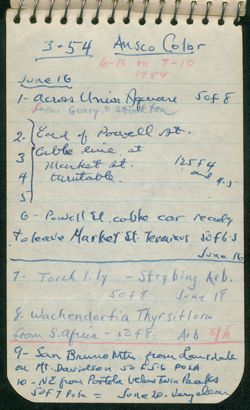 3-54 Ansco Color
6-16 to 9-10
1954
June 16
1- Across Union Square 50 f 8
from Geary & Stockton
2- End of Powell St.
3 Cable line at
Market St. 125 F 4
4 turntable. and 4.5
5
6- Powell St. cable car ready
to leave Market St. Terminus 50 f 6.3
June 16
7- Torch lily - Strybing Arb.
50 f 8 June 19
8- Wachendorfia Thyrsiflora
from S. Africa - 50 f 8 Arb
9- San Bruno Mtn. from Lansdale
on Mt. Davidson 50 F 5.6 POLA
10- NE from Portola below Twin Peaks
50 f 7 Pola = June 20. very clear